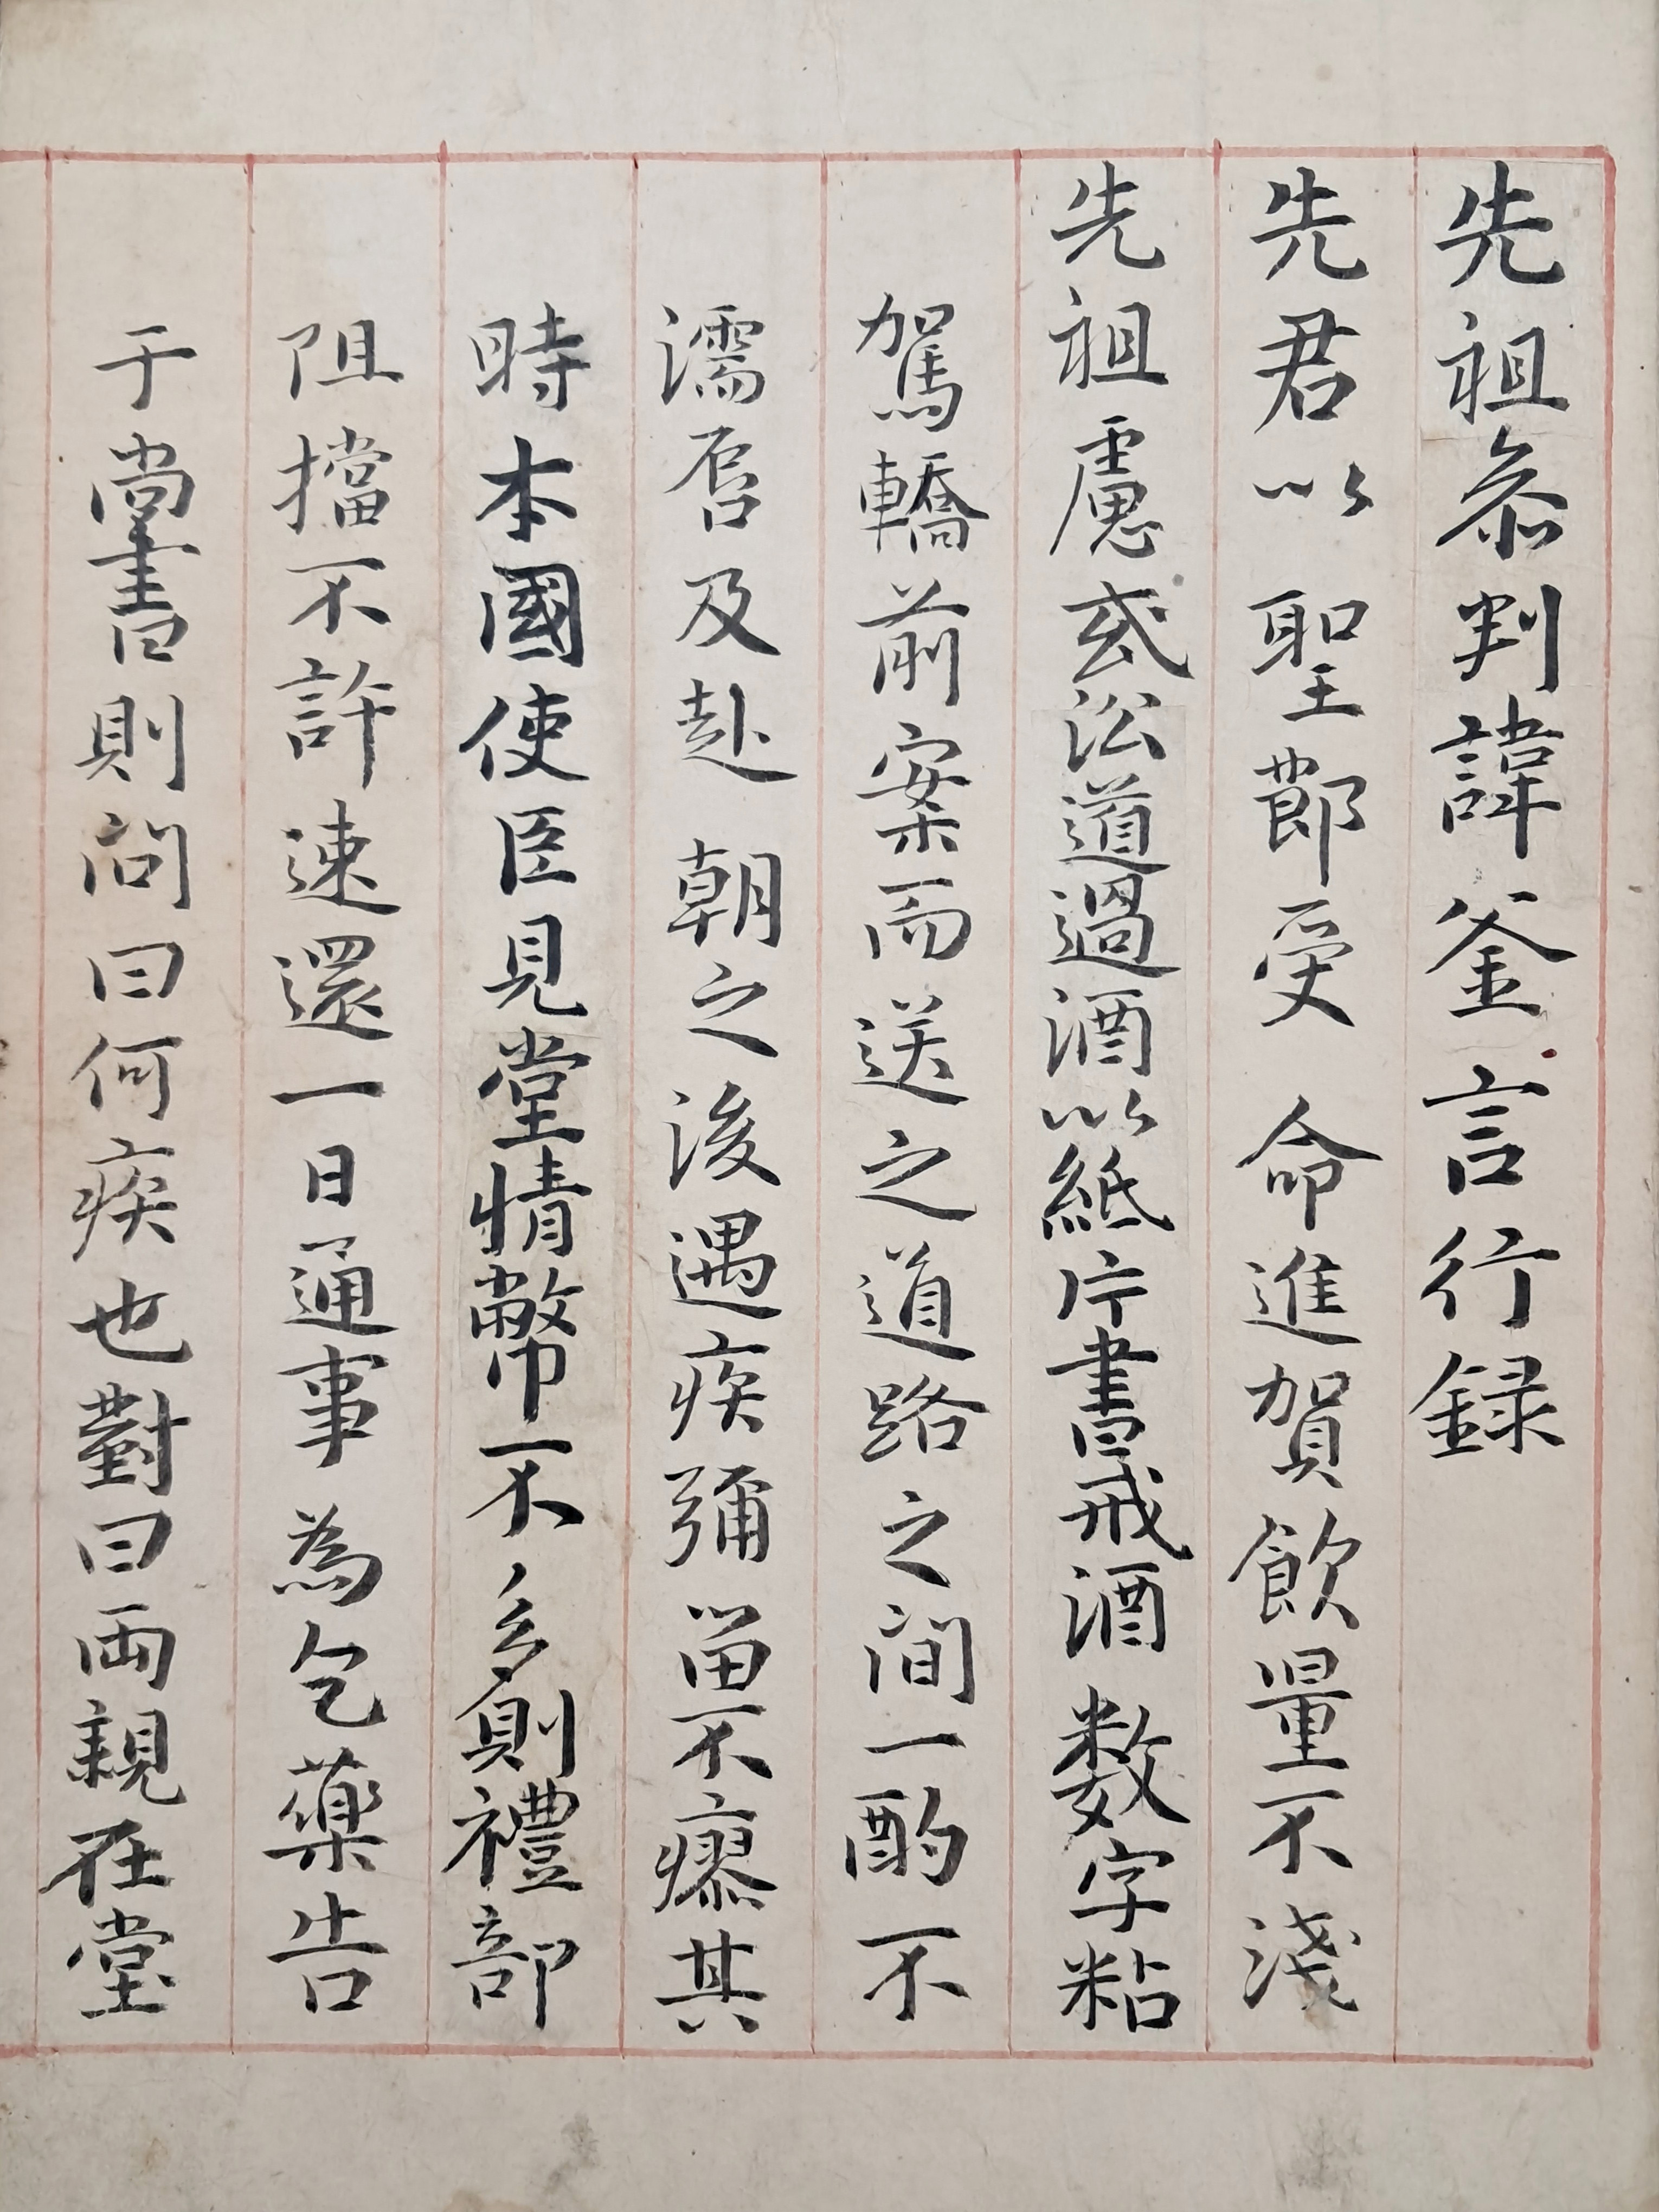 先祖叅判諱釜言行録
先君以聖節受命進賀飲量不淺
先祖慮或沿道過酒以紙片書戒酒数字粘
駕轎前案而送之道路之間一酌不
濡唇及赴朝之後遇疾彌留不瘳其
時本國使臣見堂情幣不多則禮部
阻擋不許速還一日通事為乞藥告
于尚書則問曰何疾也對曰兩親在堂